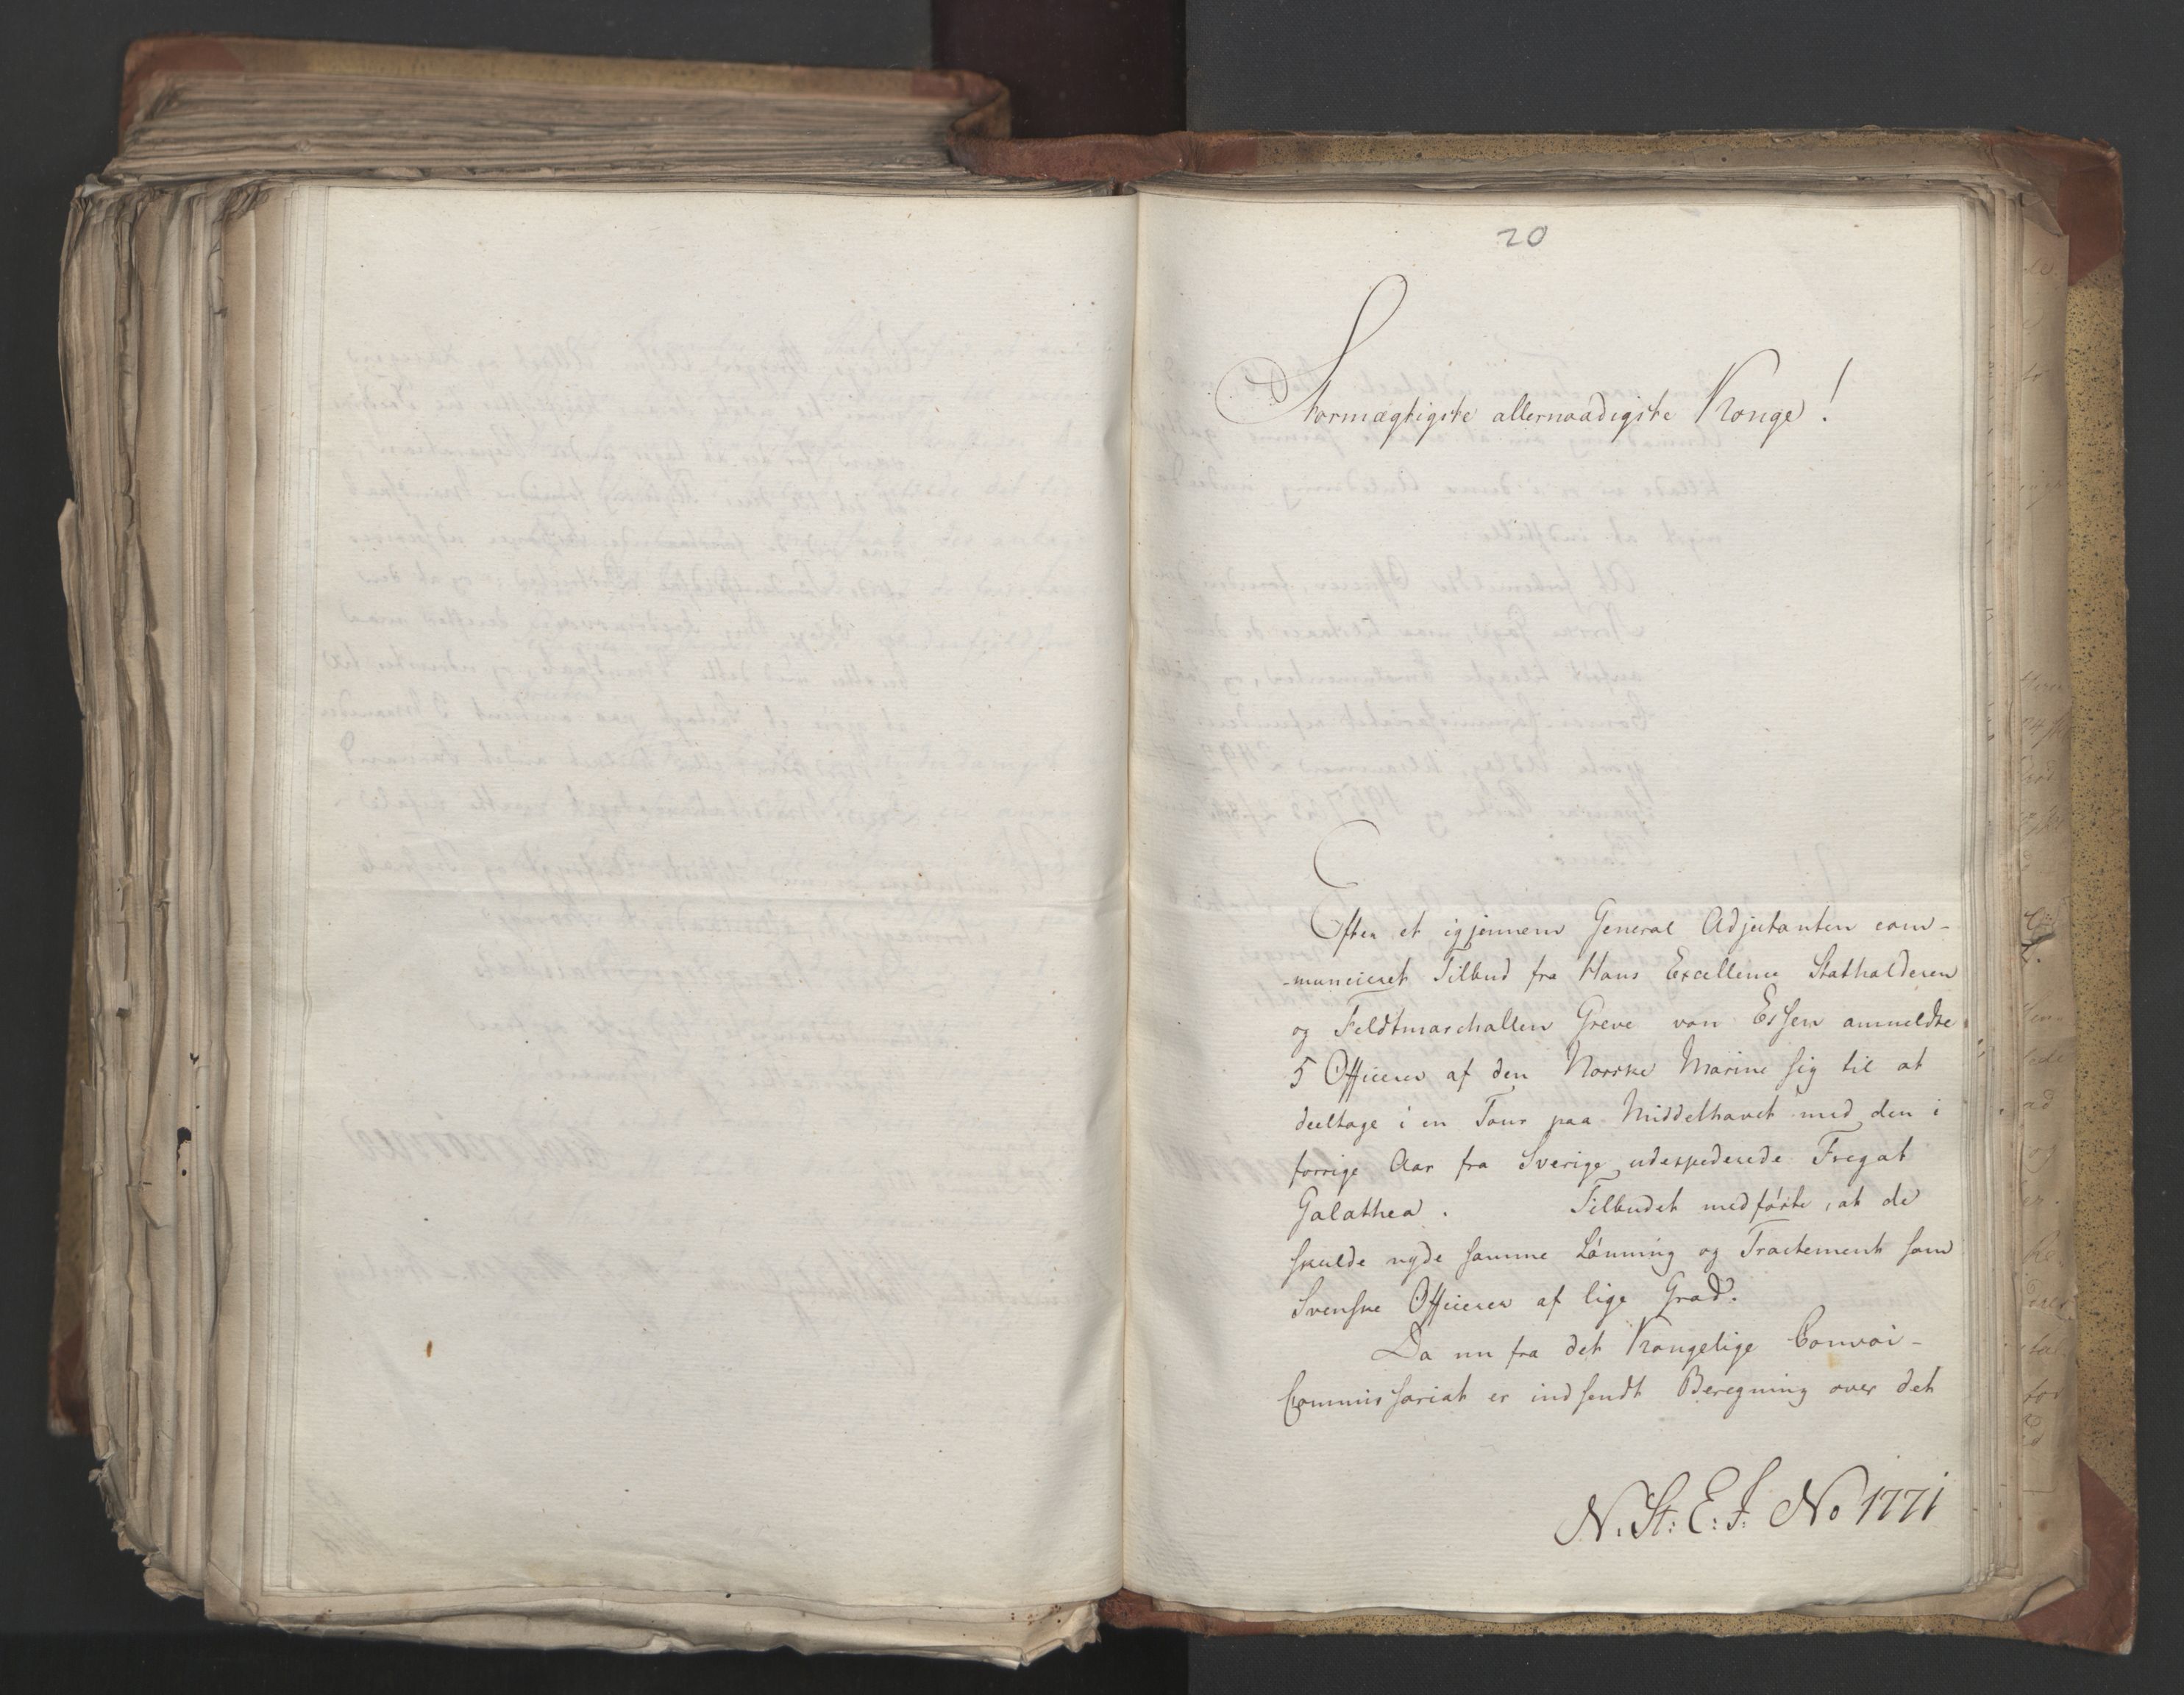 20
Stormægtigste allernaadigste Konge!
Efter et igjennem General Adjutanten com-
-municeret Tilbud fra Hans Excellence Statholderen
og Feldtmarchallen Greve von Essen anmeldte
5 Officerer af den Norske Marine sig til at
deeltage i en Tour paa Middelhavet med den i
forrige Aar fra Sverige udexpederede Fregat
Galathea. Tilbudet medførte, at de
skulde nyde samme Lønning og Tractement som
Svenske Officerer af lige Grad.
Da nu fra det Kongelige Convoi-
Commissariat er indsendt Beregning over det
N. St: E: F. No 1771